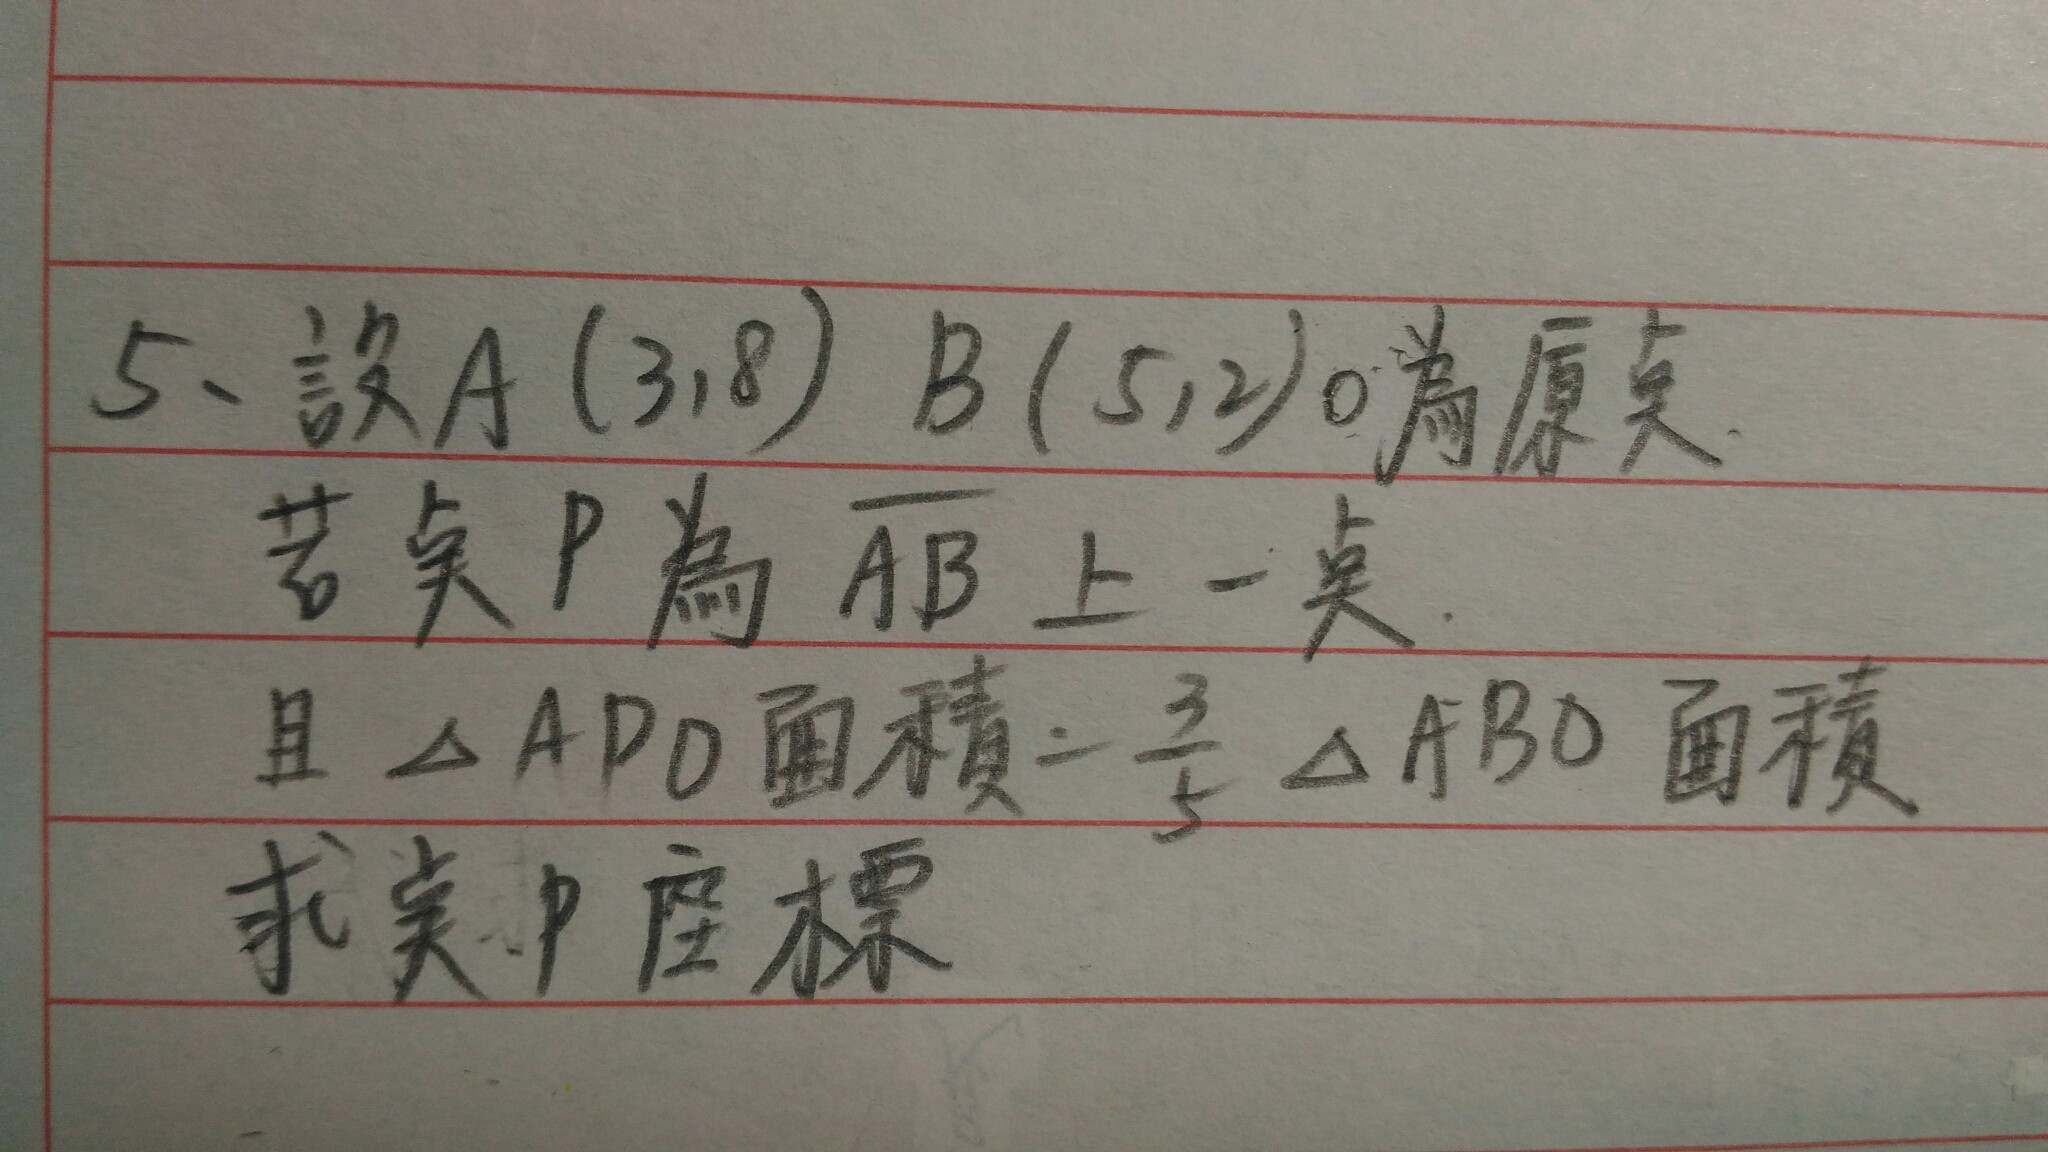 5、設A(3,8) B(5,2) O為原点.
若点P為AB上一点.
且△APO面積=3/5△ABO面積
求点P座標